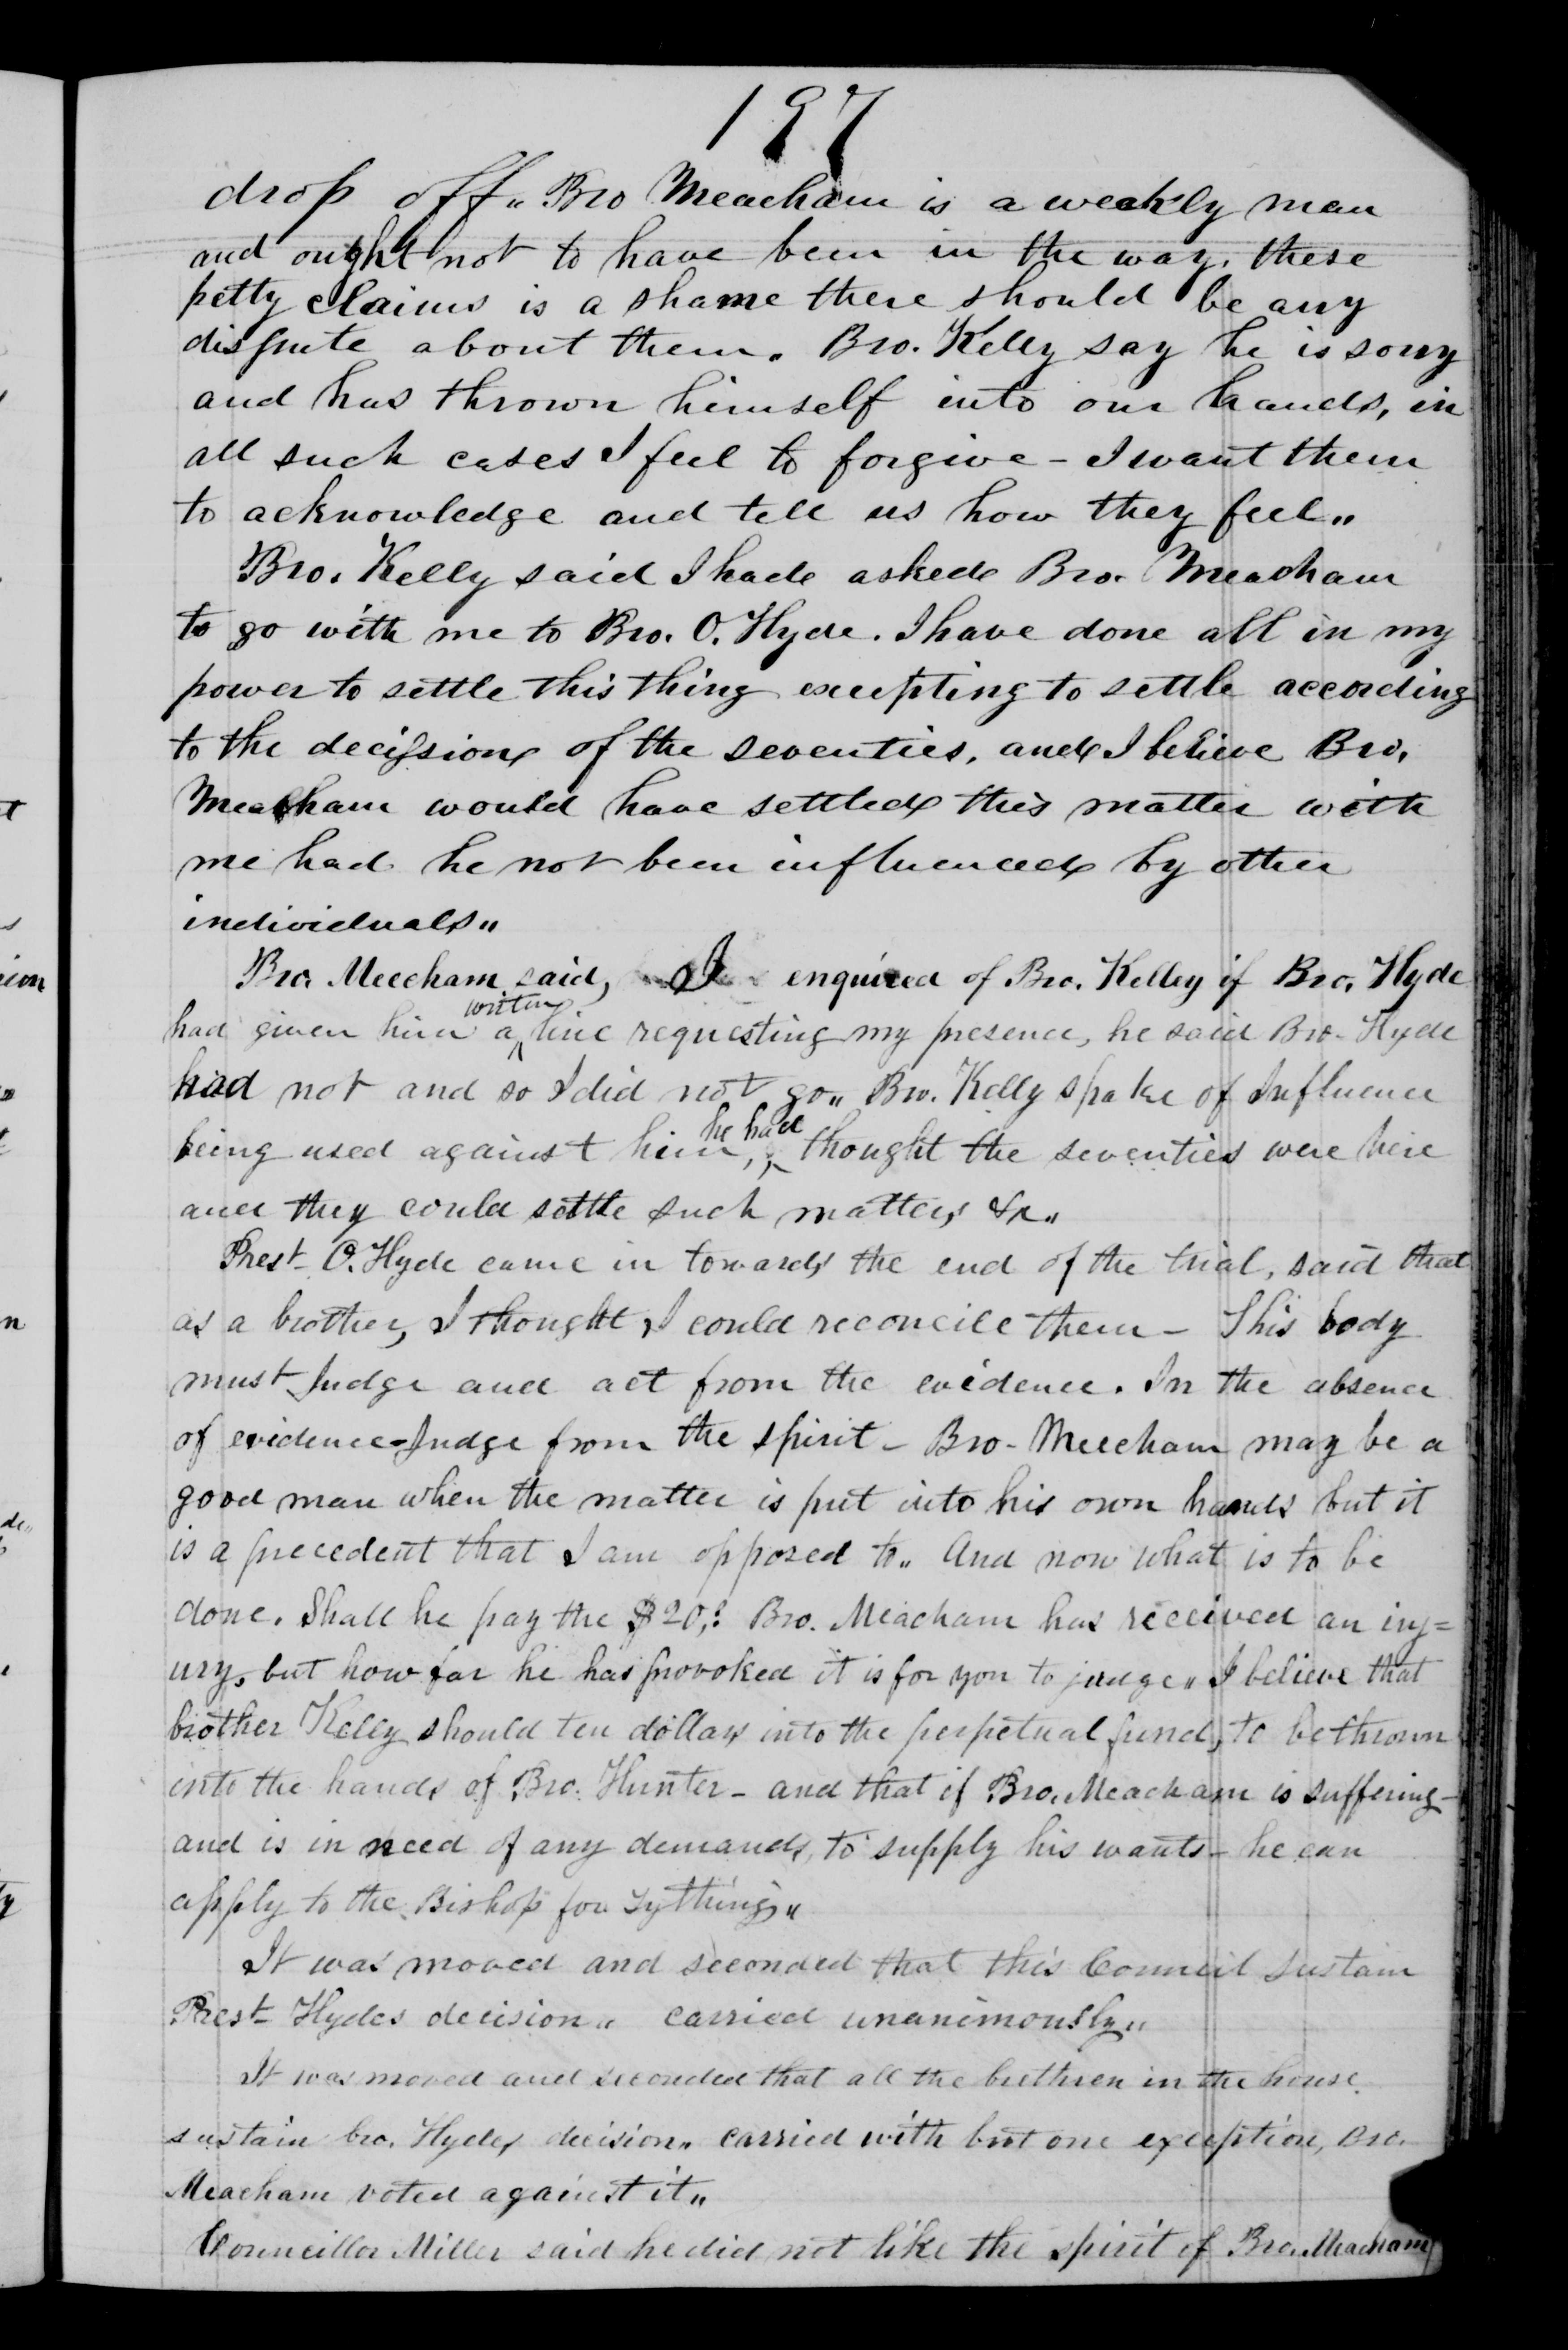 197
drop off,, Bro Meacham is a weakly man
and ought not to have been in the way, these
petty claims is a shame there should be any
dispute about them. Bro. Kelly say he is sorry
and has thrown himself into our hands, in
all such cases I feel to forgive - I want them
to acknowledge and tell us how they feel,,
Bro. Kelly said I had asked Bro. Meacham
to go with me to Bro. O. Hyde. I have done all in my
power to settle this thing excepting to settle according
to the decission of the seventies, and I believe Bro.
Meacham would have settled this matter with
me had he not been influenced by other
individuals,,
Bro. Meecham said, I enquired of Bro. Kelley if Bro. Hyde
had given him a written line requesting my presence, he said Bro. Hyde
had not and so I did not go,, Bro. Kelly spoke of Influence
being used against him, he had thought the seventies were here
and they could settle such matters &c,,
Prest- O. Hyde came in towards the end of the trial, said that
as a brother, I thought, I could reconcile them - This body
must Judge and act from the evidence. In the absence
of evidence - Judge from the spirit - Bro - Meecham may be a
good man when the matter is put into his own hands but it
is a precedent that I am opposed to,, And now what is to be
done. Shall he pay the $20,? Bro. Meacham has received an inj=
ury, but how far he has provoked it is for you to judge,, I believe that
brother Kelly should ten dollars into the perpetual fund, to be thrown
into the hands of Bro. Hunter - and that if Bro. Meacham is suffering -
and is in need of any demands, to supply his wants - he can
apply to the Bishop for Tything,,
It was moved and seconded that this Council sustain
Prest- Hydes decision,, carried unanimously,,
It was moved and seconded that all the brethren in the house
sustain bro. Hydes decision,, carried with but one exception, Bro.
Meacham voted against it,,
Councillor Miller said he did not like the spirit of Bro. Meacham